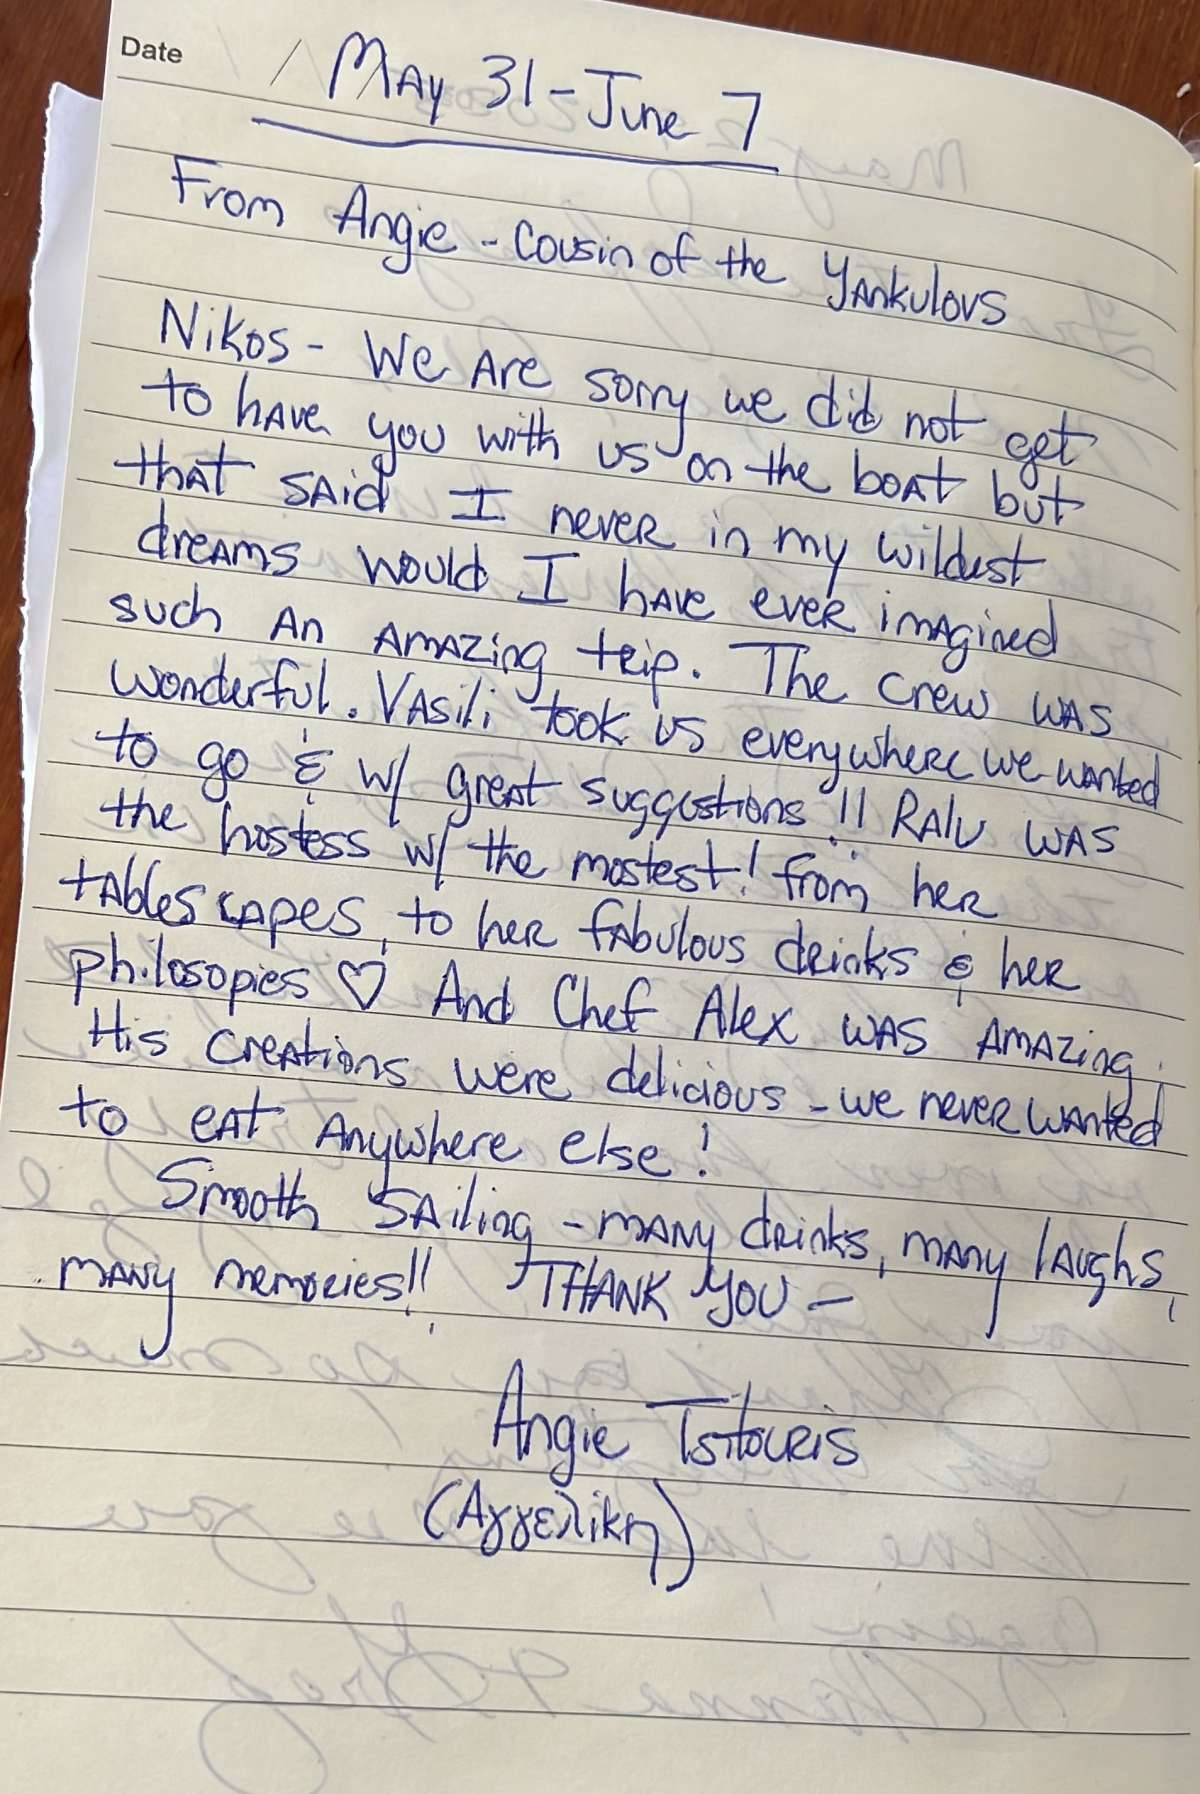 Date / May 31 - June 7
From Angie - Cousin of the Yankulovs
Nikos - We Are sorry we did not get
to have you with us on the boat but
that said I never in my wildest
dreams would I have ever imagined
such An Amazing trip. The crew was
wonderful. Vasili took us everywhere we wanted
to go & w/ great suggestions!! Ralu was
the hostess w/ the mostest! From her
tablescapes, to her fabulous drinks & her
philosopies ♡ And Chef Alex was Amazing,
His creations were delicious - we never wanted
to eat Anywhere else!
Smooth Sailing - many drinks, many laughs,
many memories!! THANK YOU -
Angie Tsitouris
(Αγγελική)